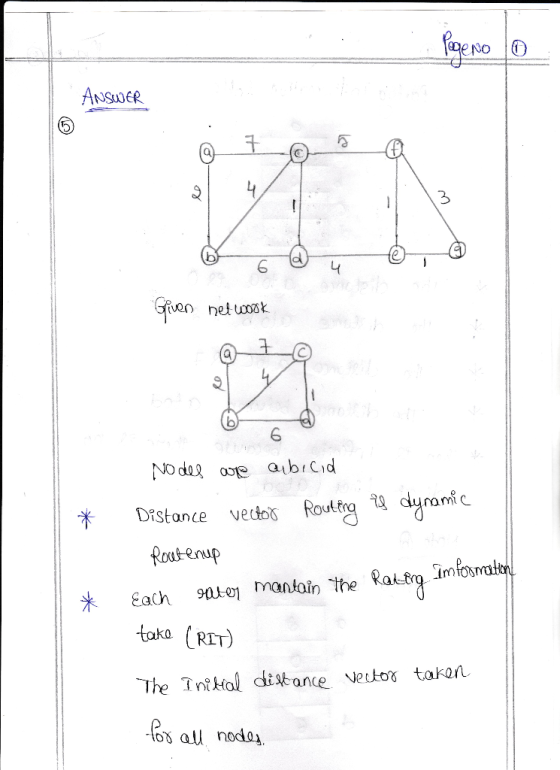 Page NO ①
ANSWER
⑤
a 7 c 5 f
2 4 1 1 3
b 6 d 4 e 1 g
Given network
a 7 c
2 4 1
b 6 d
Nodes are a,b,c,d
* Distance vector Routing is dynamic
Routenup
* Each mantain The Rating Imformation
take (RIT)
The Initial distance vector taken
for all nodes.